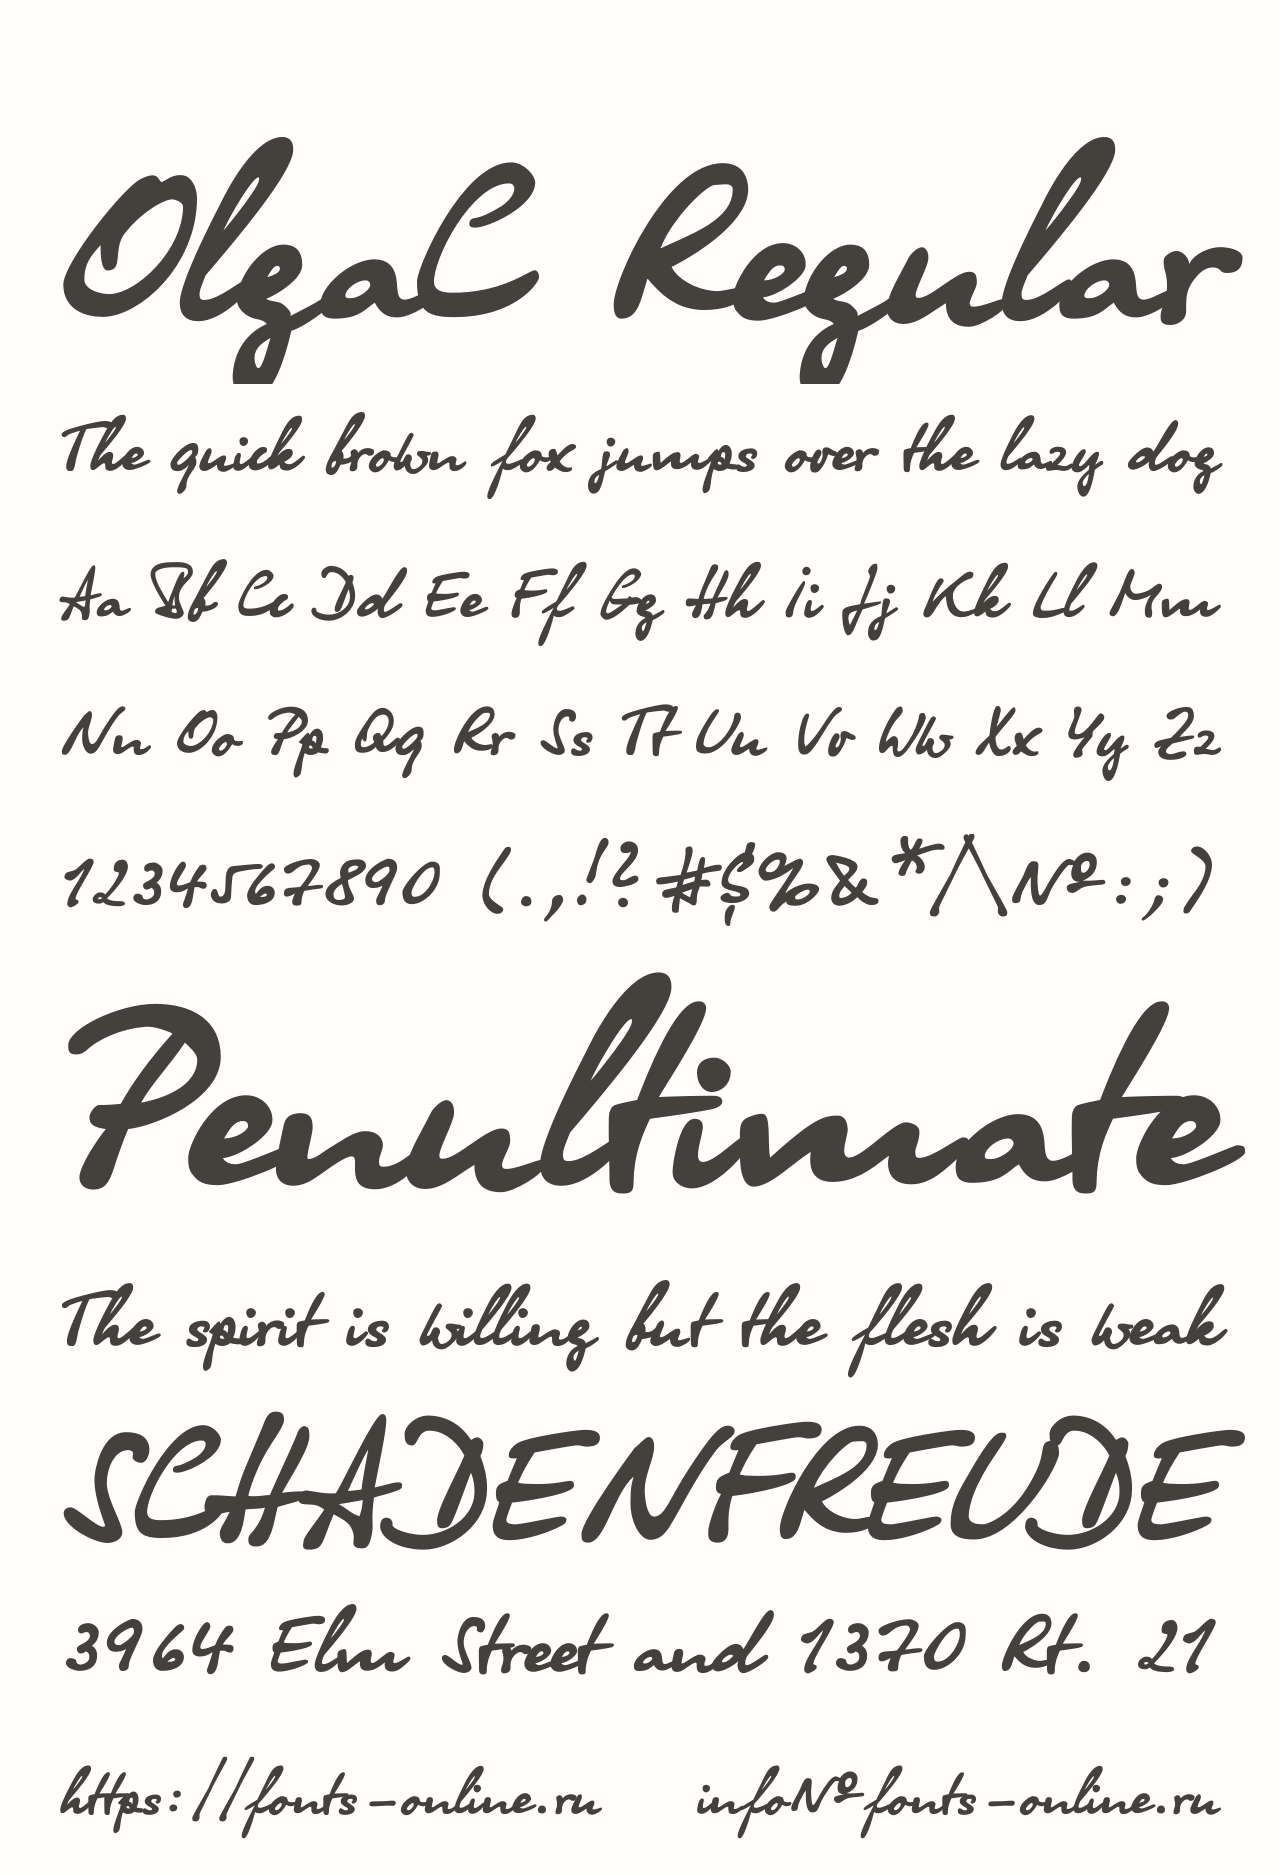 OlgaC Regular
The quick brown fox jumps over the lazy dog
Aa Bb Cc Dd Ee Ff Gg Hh Ii Jj Kk Ll Mm
Nn Oo Pp Qq Rr Ss Tt Uu Vv Ww Xx Yy Zz
1234567890 (.,!?#$%&*/\№:;)
Penultimate
The spirit is willing but the flesh is weak
SCHADENFREUDE
3964 Elm Street and 1370 Rt. 21
https://fonts-online.ru info№fonts-online.ru